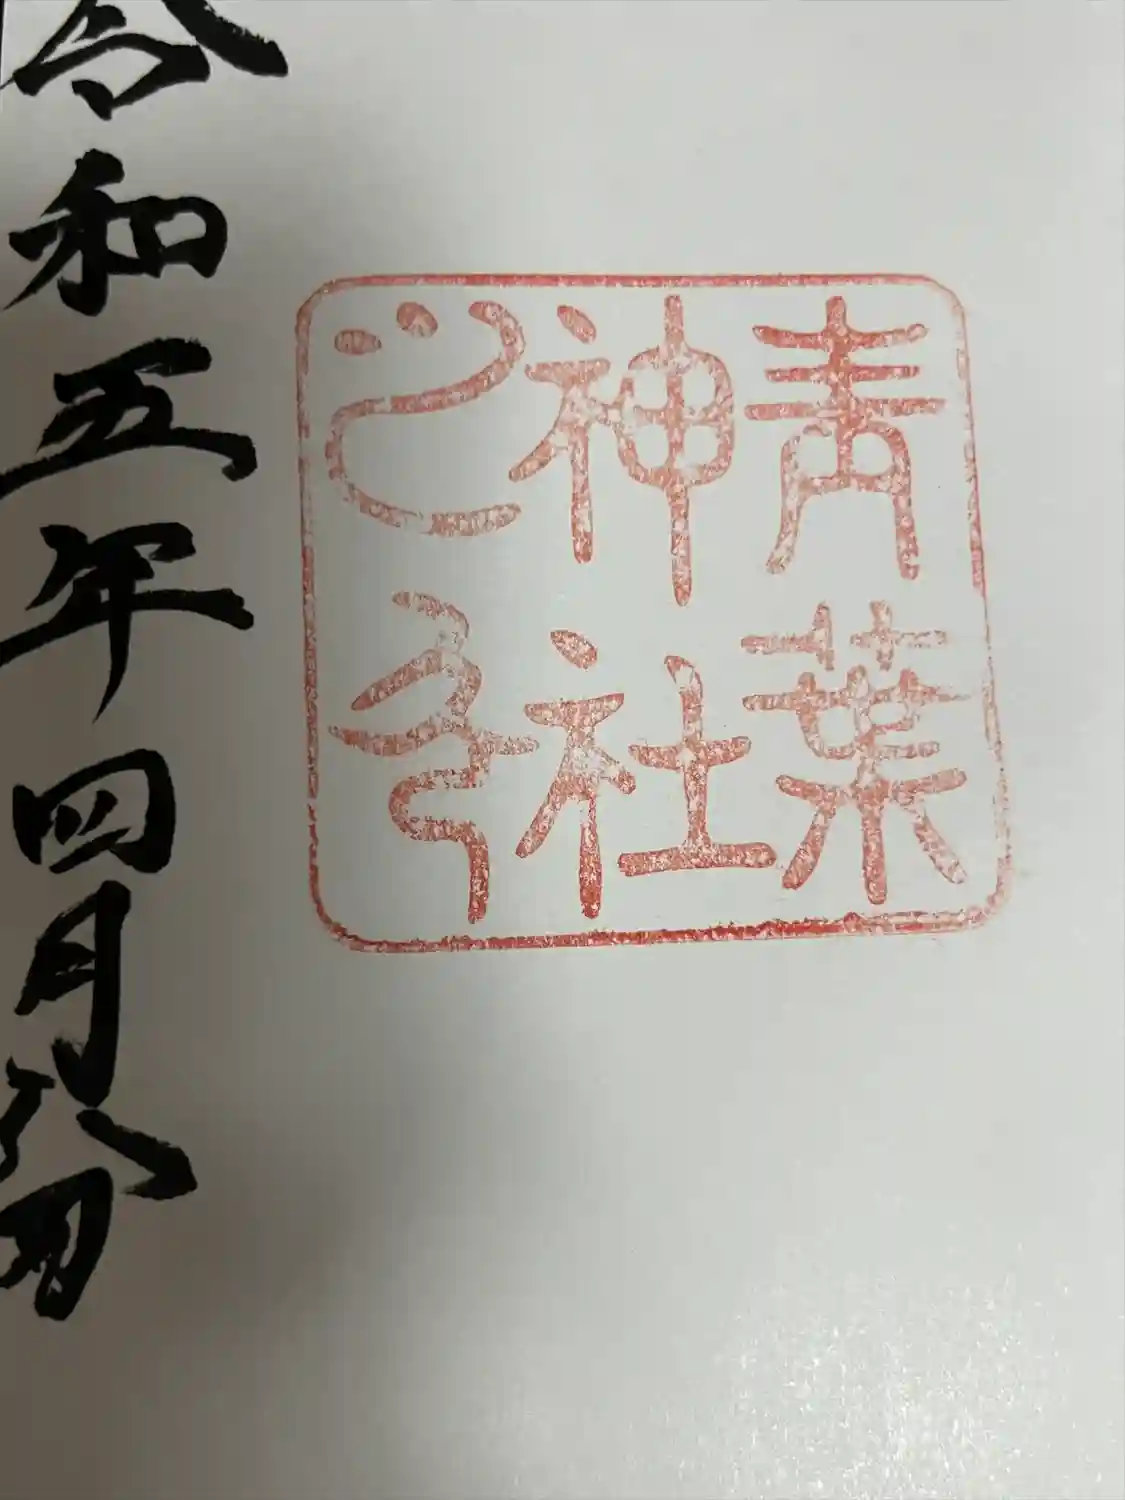 青葉
神社
之印
令和五年四月八日